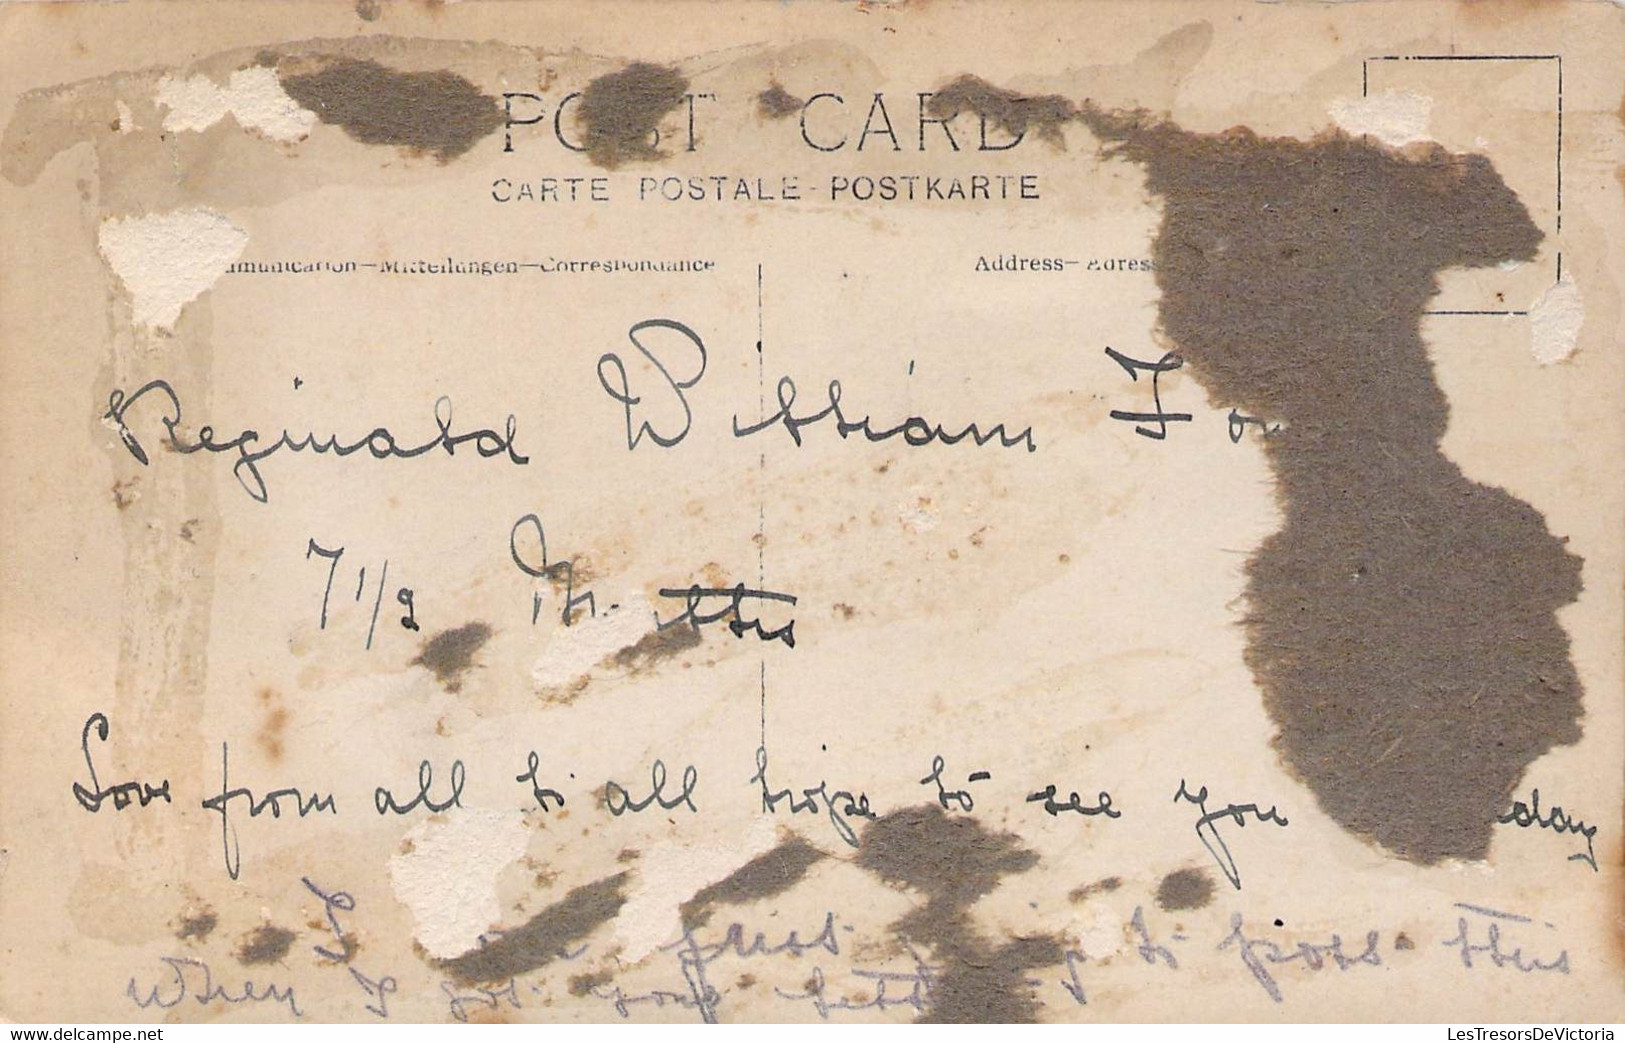 POST CARD
CARTE POSTALE - POSTKARTE
mmunication—Mitteilungen—Correspondance
Address—Adress
Reginald William
7 1/2 Mnths
Love from all to all hope to see you day
I just to poss this
When I got your
LesTresorsDeVictoria
www.delcampe.net